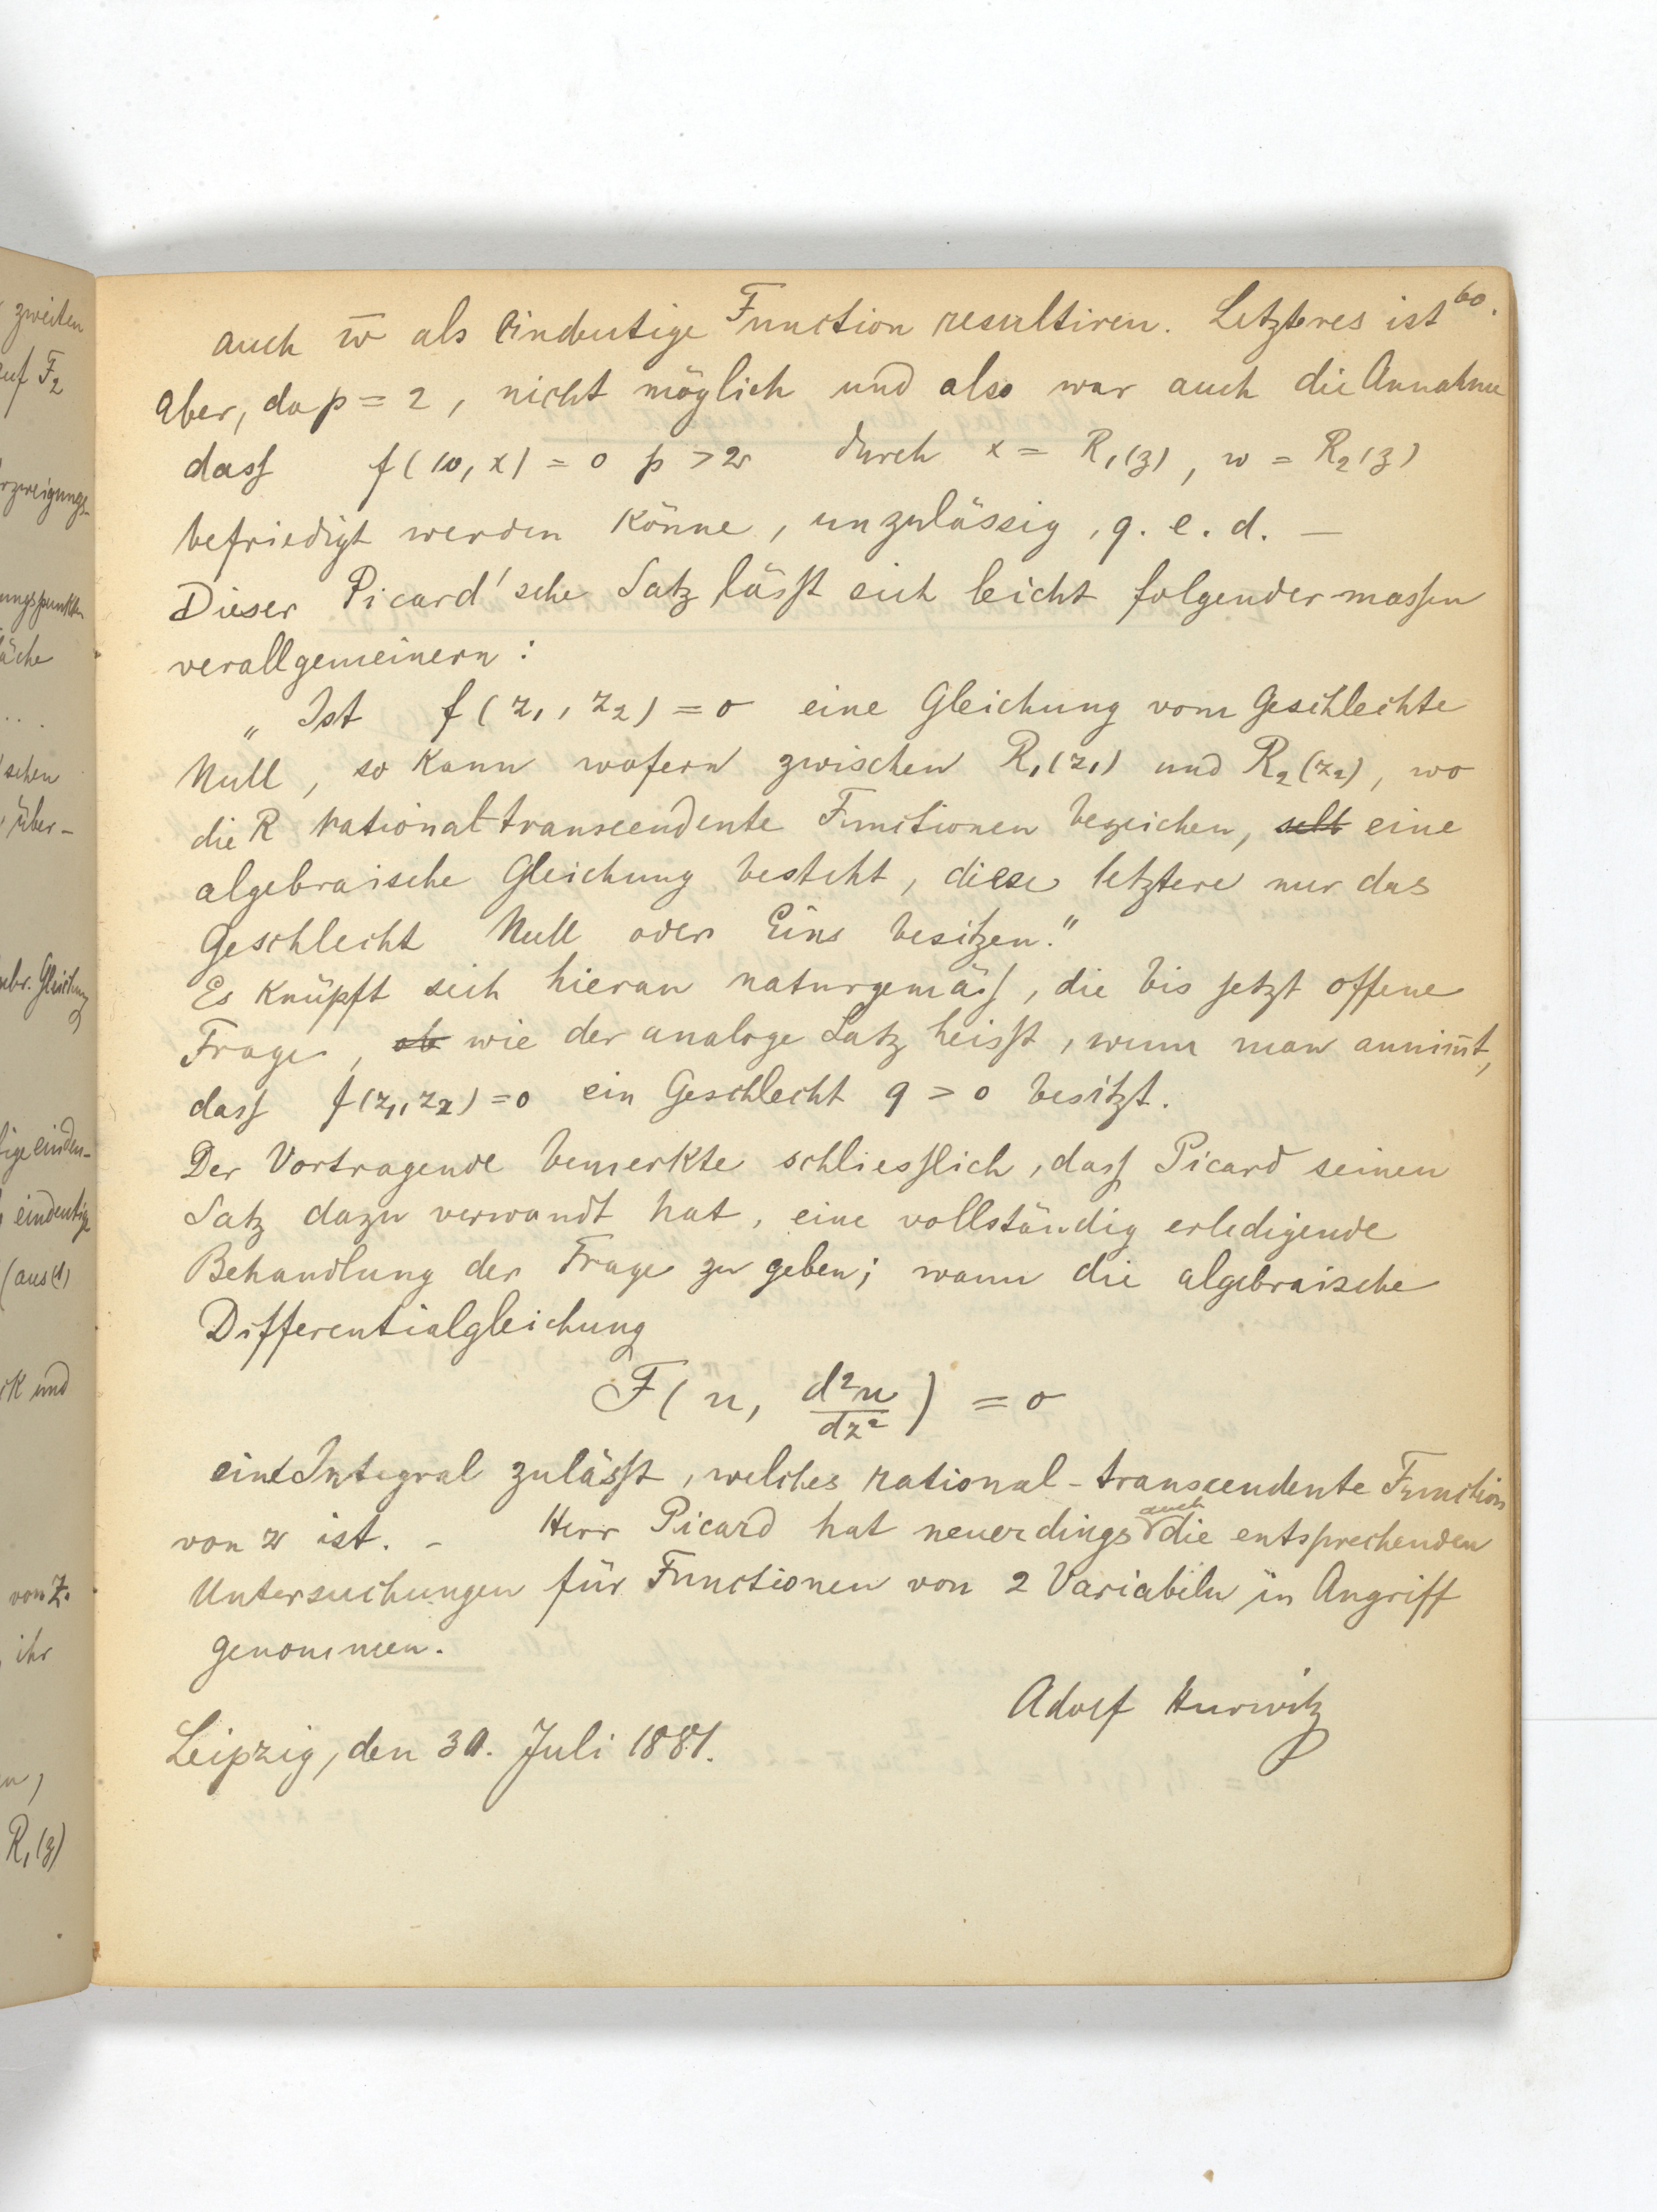 zweiten
auf F2
rzweigungs-
ungspunkten
äche
schen
über-
ebr. Gleichung
tige eindeu-
eindeutige
(aus (1)
rk und
von Z.
ihr
R1(z)
60.
auch w̅ als eindeutige Function resultiren. Letzteres ist
aber, da p = 2, nicht möglich und also war auch die Annahme
dass f(w, x) = 0 p > 2 durch x = R1(z), w = R2(z)
befriedigt werden könne, unzulässig, q. e. d. —
Dieser Picard'sche Satz lässt sich leicht folgender massen
verallgemeinern:
„Ist f(z1, z2) = 0 eine Gleichung vom Geschlechte
Null, so kann wofern zwischen R1(z1) und R2(z2), wo
die R rational-transcendente Functionen bezeichen, selb eine
algebraische Gleichung besteht, diese letztere nur das
Geschlecht Null oder Eins besitzen."
Es knüpft sich hieran naturgemäss, die bis jetzt offene
Frage, ob wie der analoge Satz heisst, wenn man annim̅t,
dass f(z1, z2) = 0 ein Geschlecht q > 0 besitzt.
Der Vortragende bemerkte schliesslich, dass Picard seinen
Satz dazu verwandt hat, eine vollständig erledigende
Behandlung der Frage zu geben; wann die algebraische
Differentialgleichung
F(u, d²u/dz²) = 0
ein Integral zulässt, welches rational-transcendente Function
von z ist. - Herr Picard hat neuerdings auch die entsprechenden
Untersuchungen für Functionen von 2 Variabeln in Angriff
genommen.
Adolf Hurwitz
Leipzig, den 30. Juli 1881.